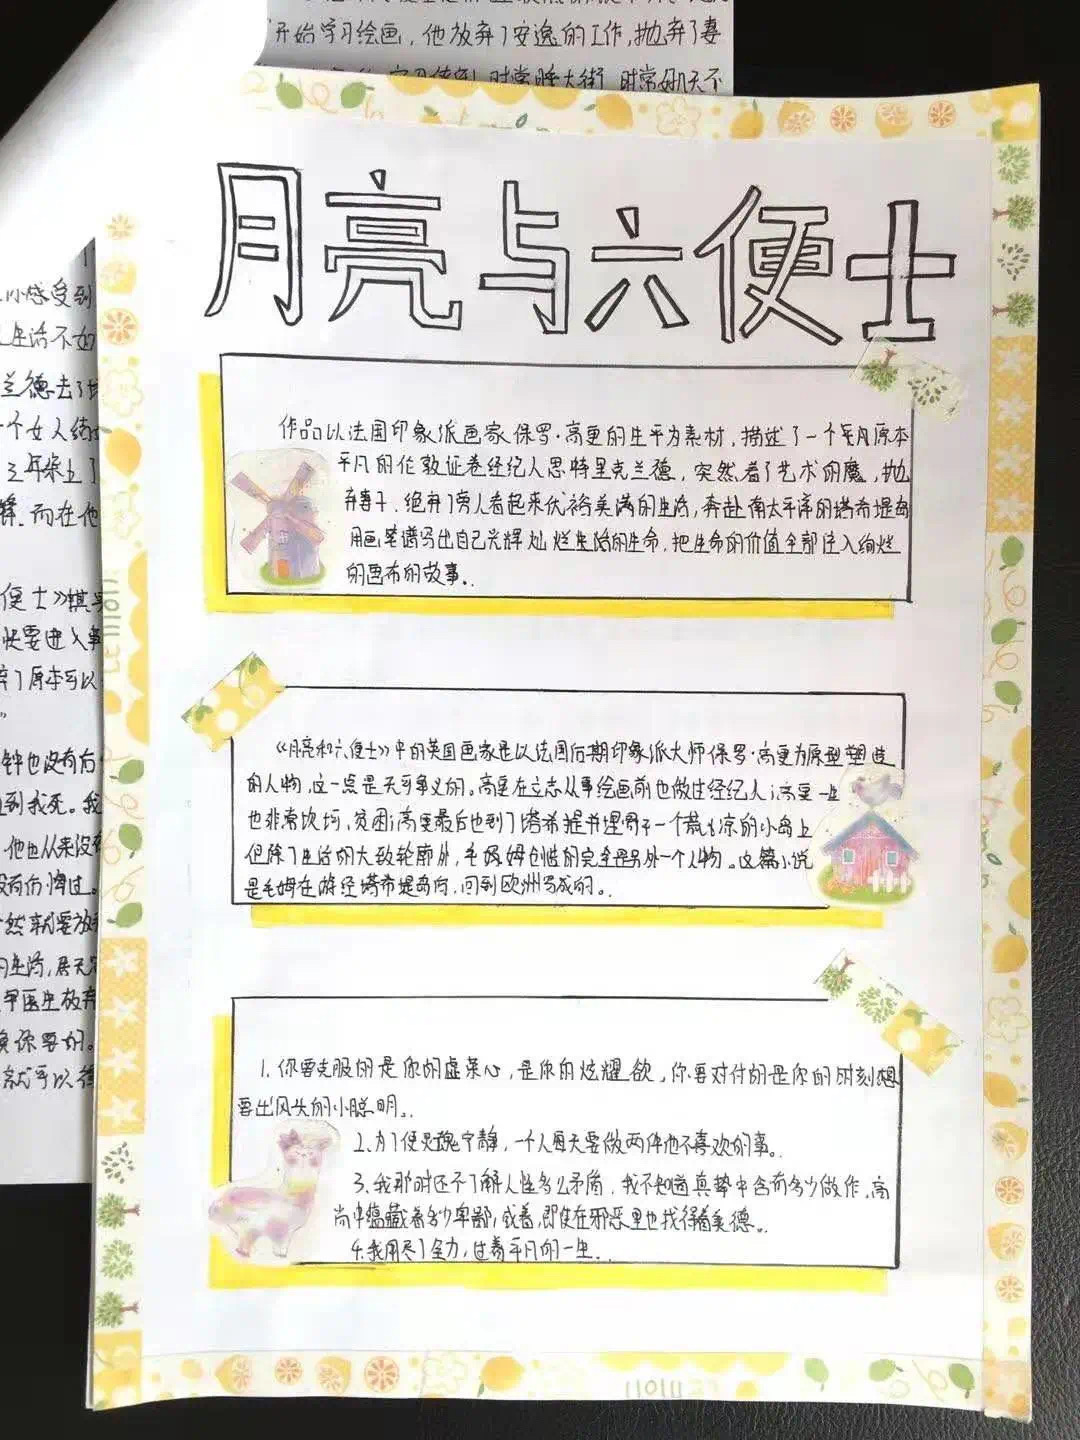 开始学习绘画，他放弃了安逸的工作，抛弃了妻
时常睡大街，时常好几天不
月亮与六便士
作品以法国印象派画家保罗·高更的生平为素材，描述了一个原本
平凡的伦敦证券经纪人思特里克兰德，突然着了艺术的魔，抛
弃妻子，绝弃了旁人看起来优裕美满的生活，奔赴南太平洋的塔希堤岛
用画笔谱写出自己光辉灿烂生活的生命，把生命的价值全部注入绚烂
的画布的故事。
《月亮和六便士》中的英国画家是以法国后期印象派大师保罗·高更为原型塑造
的人物，这一点是无可争议的。高更在立志从事绘画前也做过经纪人；高更一生
也非常坎坷，贫困；高更最后也到了塔希堤并埋骨于一个荒凉的小岛上
但除了生活的大致轮廓外，毛姆创造的完全是另外一个人物。这篇小说
是毛姆在游经塔希堤岛后，回到欧洲写成的。
1.你要克服的是你的虚荣心，是你的炫耀欲。你要对付的是你的时刻想
要出风头的小聪明。
2.为了使灵魂宁静，一个人每天要做两件他不喜欢的事。
3.我那时还不了解人性多么矛盾，我不知道真挚中含有多少做作，高
尚中蕴藏着多少卑鄙，或着，即使在邪恶里也找得着美德。
4.我用尽了全力，过着平凡的一生。
小感受到
生活不如
兰德去了
个女人结
而在他
便士》
快要进入
弃了原本可以
钟也没有后
到我死。我
他也从来没有
没有后悔过。
然就要放弃
生活，居无定
早医生放弃
你要的。
就可以